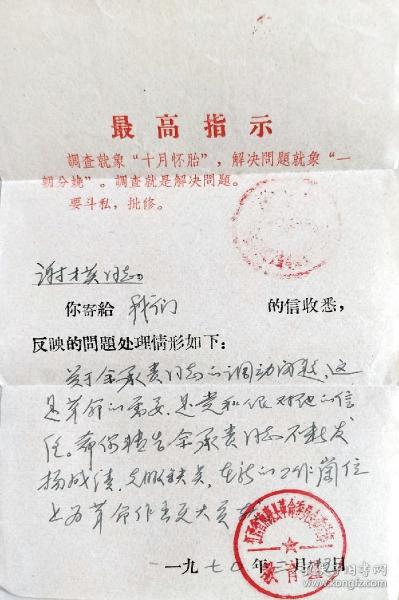 最高指示
調查就象“十月怀胎”，解决問題就象“一
朝分娩”。調查就是解决問題。
要斗私，批修。
谢才英同志：
你寄給 我们 的信收悉，
反映的問題处理情形如下：
关于余承贵同志的调动问题，这
是革命的需要，是党和组织对他的信
任。希你转告余承贵同志不断发
扬成绩，克服缺点，在新的工作岗位
上为革命作出更大贡
一九七〇年三月 日
教育
孔夫子旧书网
www.kongfz.com